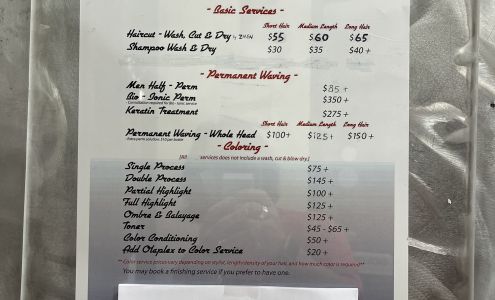 - Basic Services -
Short Hair Medium Length Long Hair
Haircut - Wash, Cut & Dry $55 $60 $65
Shampoo Wash & Dry $30 $35 $40 +
- Permanent Waving -
Men Half - Perm $85 +
Bio - Ionic Perm $350 +
*Consultation required for Bio - Ionic service
Keratin Treatment $275 +
Short Hair Medium Length Long Hair
Permanent Waving - Whole Head $100+ $125+ $150 +
*Extra perm solution, $10 per bottle
- Coloring -
services does not include a wash, cut & blow dry.]
Single Process $75 +
Double Process $145 +
Partial Highlight $100 +
Full Highlight $125 +
Ombre & Balayage $125 +
Toner $45 - $65 +
Color Conditioning $50 +
Add Olaplex to Color Service $20 +
**Color service prices vary depending on stylist, length/density of your hair, and how much color is required**
You may book a finishing service if you prefer to have one.